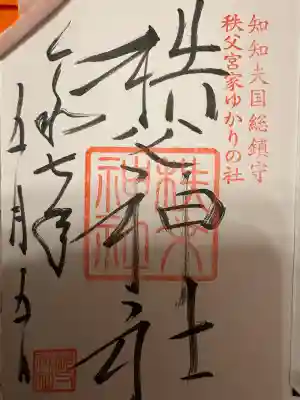 知知夫国総鎮守
秩父宮家ゆかりの社
秩父神社
令和七年
五月五日
秩父
神社